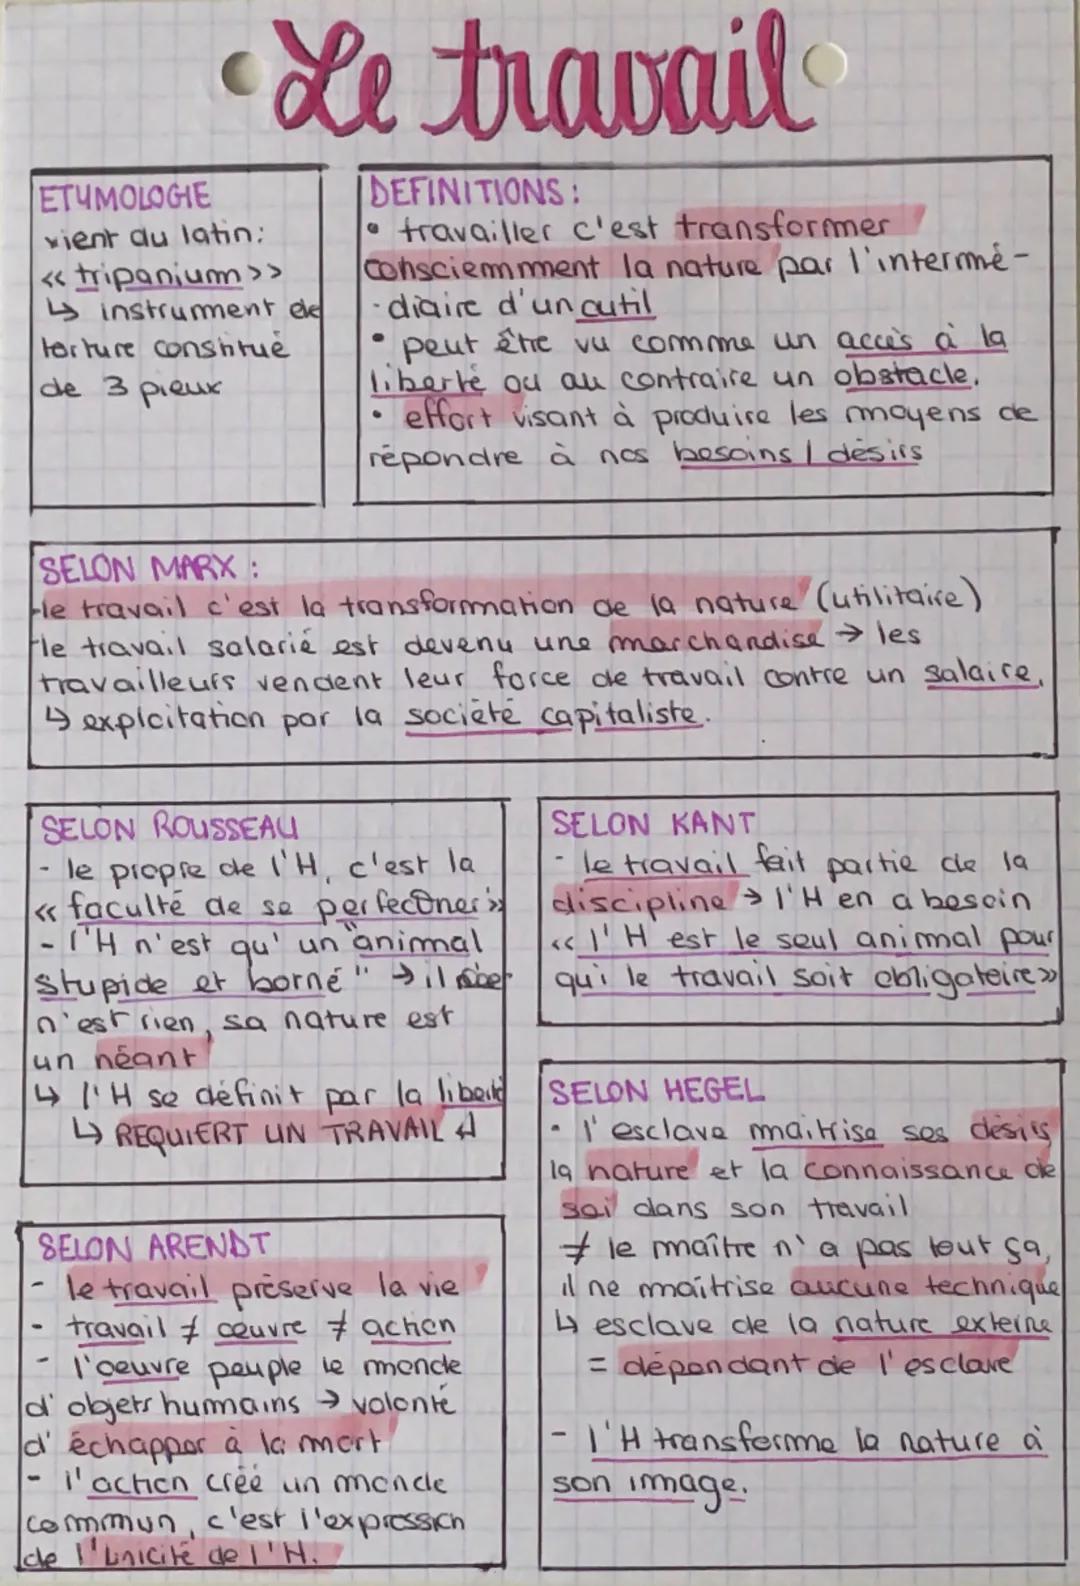 Le travail
ETYMOLOGIE
vient du latin:
<< tripanium >>
↳ instrument de
torture constitué
de 3 pieux
DEFINITIONS:
• travailler c'est transformer
consciemment la nature par l'intermé-
-diaire d'un outil
• peut être vu comme un accès à la
liberté ou au contraire un obstacle.
• effort visant à produire les moyens de
répondre à nos besoins / désirs
SELON MARX :
-le travail c'est la transformation de la nature (utilitaire)
-le travail salarié est devenu une marchandise → les
travailleurs vendent leur force de travail contre un salaire.
↳ exploitation par la société capitaliste.
SELON ROUSSEAU
- le propre de l'H, c'est la
<< faculté de se perfectioner >>
- l'H n'est qu' un "animal
stupide et borné" → il
n'est rien, sa nature est
un néant
↳ l'H se définit par la liberté
↳ REQUIERT UN TRAVAIL
SELON KANT
- le travail fait partie de la
discipline → l'H en a besoin
<< l'H est le seul animal pour
qui le travail soit obligatoire >>
SELON HEGEL
- l'esclave maîtrise ses désirs
la nature et la connaissance de
soi dans son travail
≠ le maître n'a pas tout ça,
il ne maîtrise aucune technique
↳ esclave de la nature externe
= dépendant de l'esclave
- l'H transforme la nature à
son image.
SELON ARENDT
- le travail préserve la vie
- travail ≠ œuvre ≠ action
- l'oeuvre peuple le monde
d'objets humains → volonté
d'échapper à la mort
- l'action créé un monde
commun, c'est l'expression
de l'unicité de l'H.